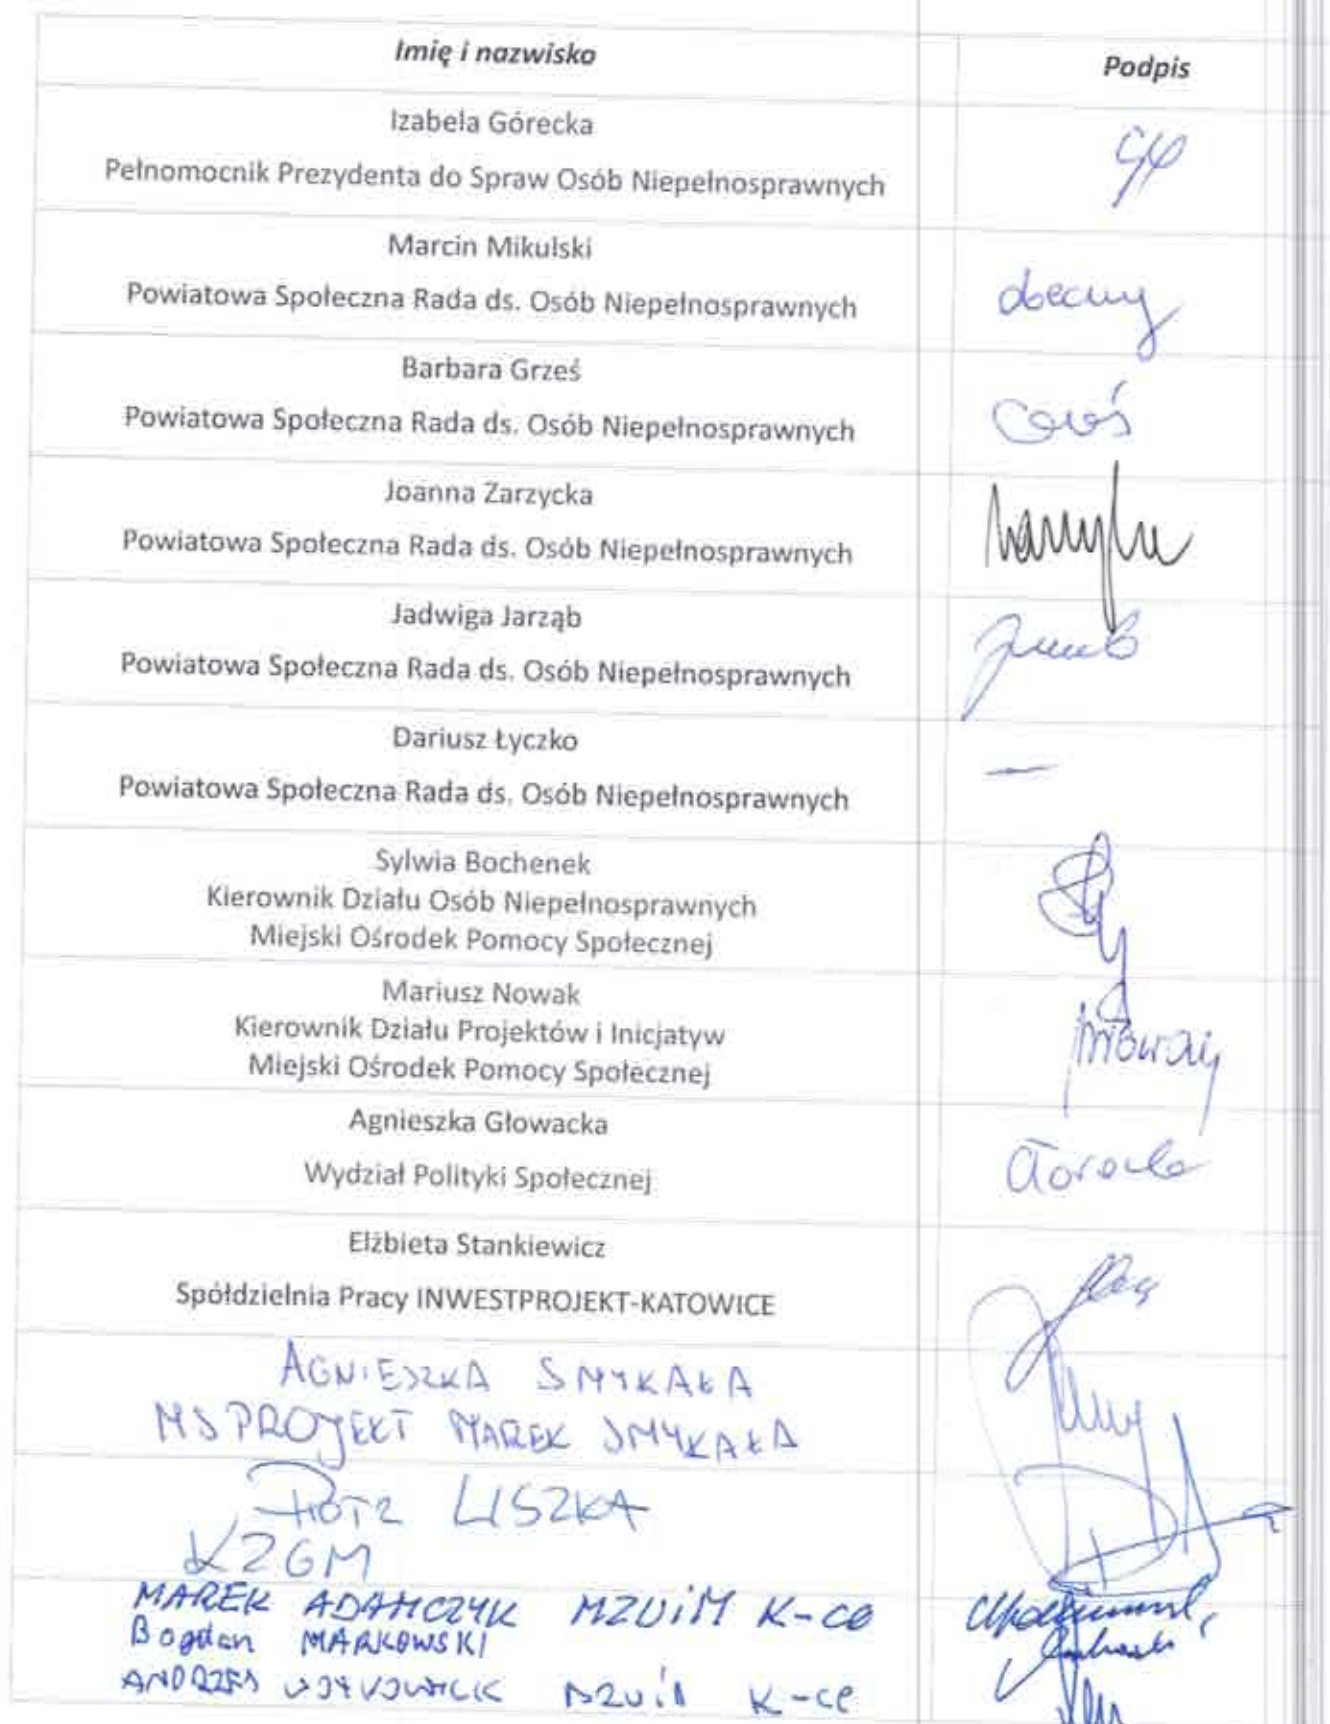 Imię i nazwisko
Podpis
Izabela Górecka
Pełnomocnik Prezydenta do Spraw Osób Niepełnosprawnych
Marcin Mikulski
Powiatowa Społeczna Rada ds. Osób Niepełnosprawnych
obecny
Barbara Grześ
Powiatowa Społeczna Rada ds. Osób Niepełnosprawnych
Joanna Zarzycka
Powiatowa Społeczna Rada ds. Osób Niepełnosprawnych
Jadwiga Jarząb
Powiatowa Społeczna Rada ds. Osób Niepełnosprawnych
Dariusz Łyczko
Powiatowa Społeczna Rada ds. Osób Niepełnosprawnych
—
Sylwia Bochenek
Kierownik Działu Osób Niepełnosprawnych
Miejski Ośrodek Pomocy Społecznej
Mariusz Nowak
Kierownik Działu Projektów i Inicjatyw
Miejski Ośrodek Pomocy Społecznej
Agnieszka Głowacka
Wydział Polityki Społecznej
Elżbieta Stankiewicz
Spółdzielnia Pracy INWESTPROJEKT-KATOWICE
AGNIESZKA SMYKAŁA
MS PROJEKT MAREK SMYKAŁA
PIOTR LISZKA
KZGM
MAREK ADAMCZYK MZUiM K-ce
Bogdan MARKOWSKI
ANDRZEJ MZUiM K-ce